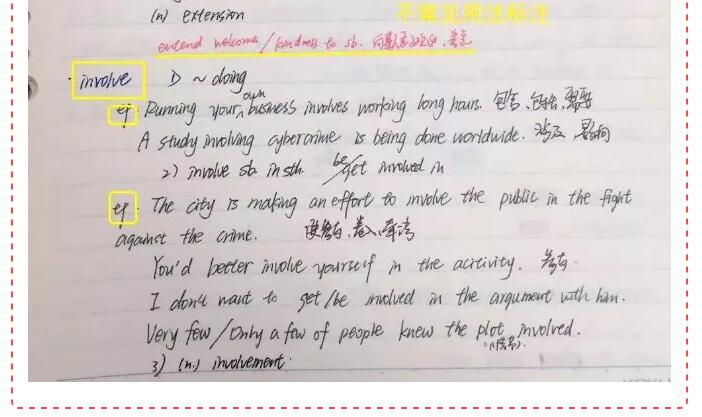 (n) extension
extend welcome/kindness to sb. 向
involve 1) ~ doing
eg Running your own business involves working long hours. 包含、包括、需要
A study involving cybercrime is being done worldwide. 涉及 影响
2) involve sb in sth. be/get involved in
eg. The city is making an effort to involve the public in the fight
against the crime. 使参与、卷入、牵涉
You'd better involve yourself in the activity. 参与
I don't want to get/be involved in the argument with him.
Very few/Only a few of people knew the plot involved.
3) (n.) involvement.